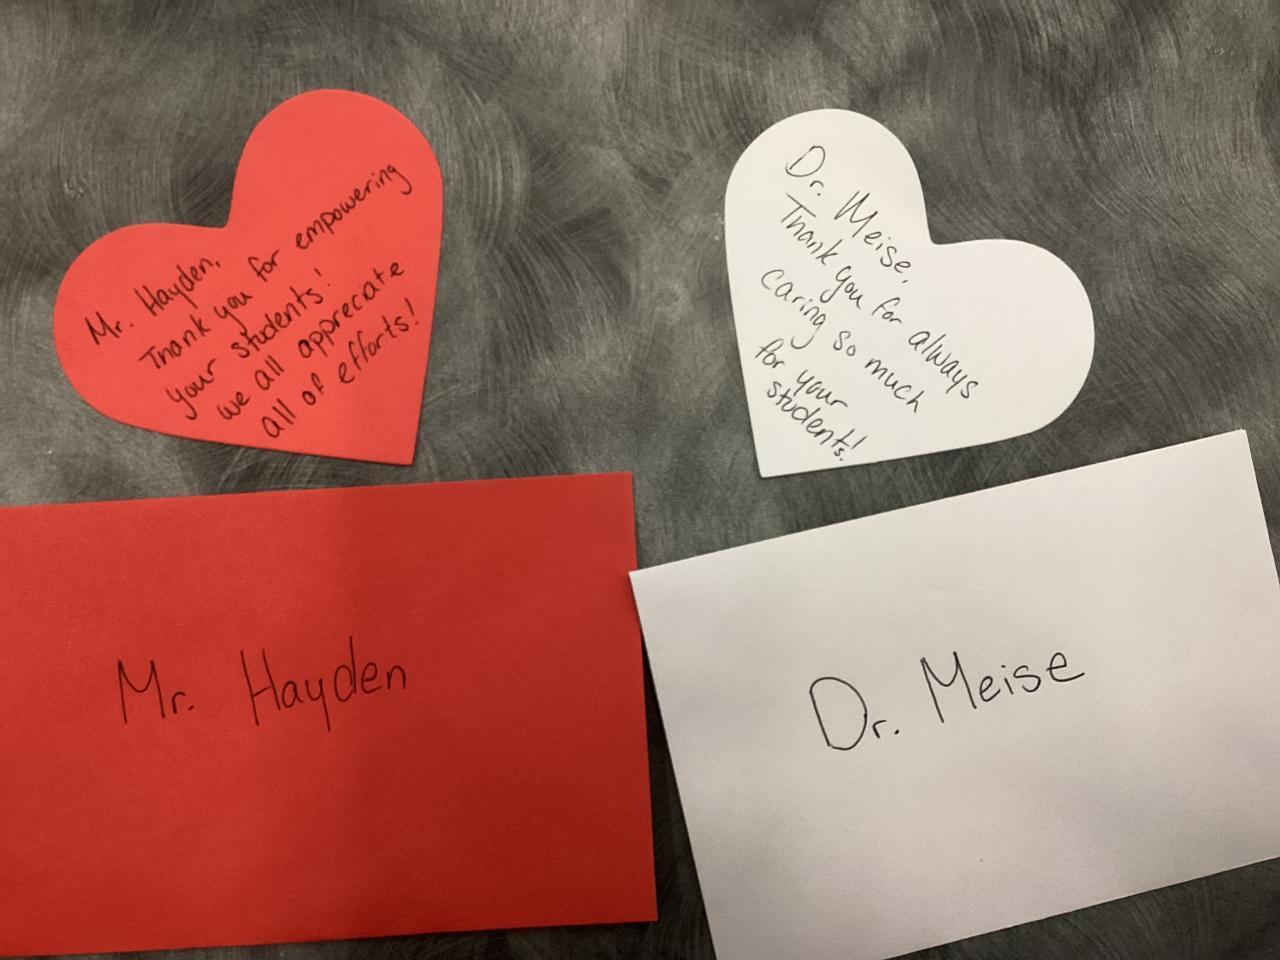 Mr. Hayden,
Thank you for empowering
your students!
we all appreciate
all of efforts!
Dr. Meise,
Thank you for always
caring so much
for your
students!
Mr. Hayden
Dr. Meise